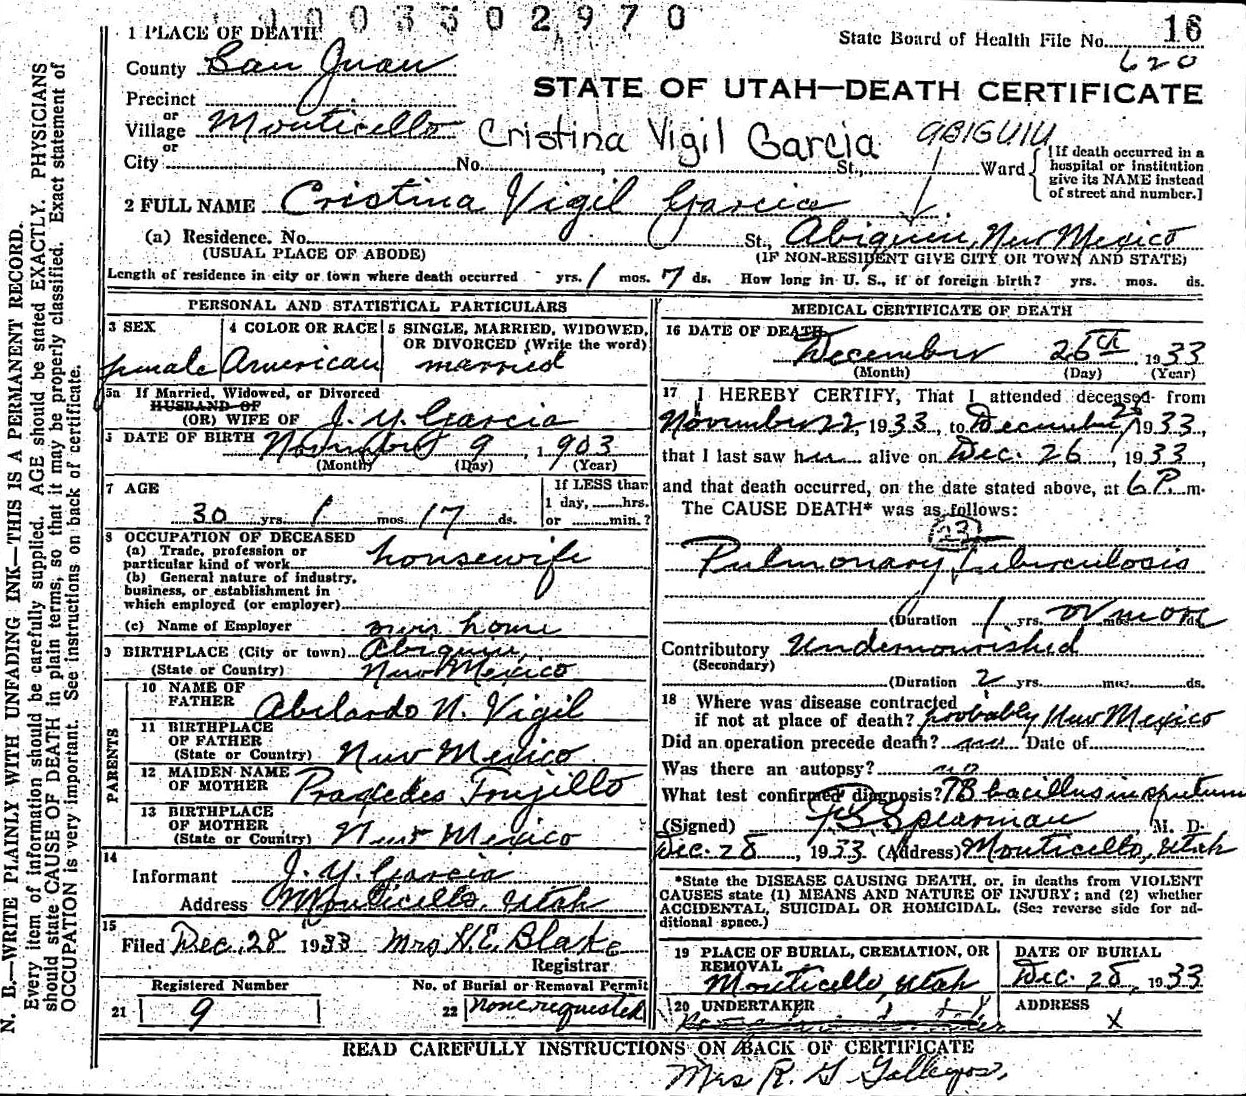 1003302970
16
State Board of Health File No.
620
1 PLACE OF DEATH
County San Juan
STATE OF UTAH—DEATH CERTIFICATE
Precinct
or
Village Monticello
Cristina Vigil Garcia
ABIGUIU
or
City No. St., Ward
[If death occurred in a
hospital or institution
give its NAME instead
of street and number.]
2 FULL NAME Cristina Vigil Garcia
(a) Residence. No. St., Abiquiu, New Mexico
(USUAL PLACE OF ABODE)
(IF NON-RESIDENT GIVE CITY OR TOWN AND STATE)
Length of residence in city or town where death occurred yrs. 1 mos. 7 ds. How long in U. S., if of foreign birth? yrs. mos. ds.
PERSONAL AND STATISTICAL PARTICULARS
3 SEX
female
4 COLOR OR RACE
American
5 SINGLE, MARRIED, WIDOWED,
OR DIVORCED (Write the word)
married
5a If Married, Widowed, or Divorced
HUSBAND OF
(OR) WIFE OF J. Y. Garcia
DATE OF BIRTH November 9, 1903
(Month) (Day) (Year)
7 AGE
30 yrs. 1 mos. 17 ds.
If LESS than
1 day, hrs.
or min.?
8 OCCUPATION OF DECEASED
(a) Trade, profession or
particular kind of work housewife
(b) General nature of industry,
business, or establishment in
which employed (or employer)
(c) Name of Employer own home
9 BIRTHPLACE (City or town) Abiquiu,
(State or Country) New Mexico
PARENTS
10 NAME OF
FATHER Abelardo N. Vigil
11 BIRTHPLACE
OF FATHER
(State or Country) New Mexico
12 MAIDEN NAME
OF MOTHER Praxedes Trujillo
13 BIRTHPLACE
OF MOTHER
(State or Country) New Mexico
14
Informant J. Y. Garcia
Address Monticello, Utah
15
Filed Dec. 28 1933 Mrs. H. E. Blake
Registrar
Registered Number
21 9
No. of Burial or Removal Permit
22 none requested
MEDICAL CERTIFICATE OF DEATH
16 DATE OF DEATH
December 26th, 1933
(Month) (Day) (Year)
17 I HEREBY CERTIFY, That I attended deceased from
November 22, 1933, to December 26, 1933,
that I last saw her alive on Dec. 26, 1933,
and that death occurred, on the date stated above, at 6 P. m.
The CAUSE DEATH* was as follows:
23
Pulmonary Tuberculosis
(Duration 1 yrs. or more mos. ds.
Contributory Undernourished
(Secondary)
(Duration 2 yrs. mos. ds.
18 Where was disease contracted
if not at place of death? probably New Mexico
Did an operation precede death? no Date of
Was there an autopsy? no
What test confirmed diagnosis? TB bacillus in sputum
(Signed) Spearman M. D.
Dec. 28, 1933 (Address) Monticello, Utah
*State the DISEASE CAUSING DEATH, or, in deaths from VIOLENT
CAUSES state (1) MEANS AND NATURE OF INJURY; and (2) whether
ACCIDENTAL, SUICIDAL OR HOMICIDAL. (See reverse side for ad-
ditional space.)
19 PLACE OF BURIAL, CREMATION, OR
REMOVAL
Monticello, Utah
DATE OF BURIAL
Dec. 28, 1933
20 UNDERTAKER
ADDRESS
X
READ CAREFULLY INSTRUCTIONS ON BACK OF CERTIFICATE
Mrs R. G. Gallegos.
N. B.—WRITE PLAINLY WITH UNFADING INK—THIS IS A PERMANENT RECORD.
Every item of information should be carefully supplied. AGE should be stated EXACTLY. PHYSICIANS
should state CAUSE OF DEATH in plain terms, so that it may be properly classified. Exact statement of
OCCUPATION is very important. See instructions on back of certificate.